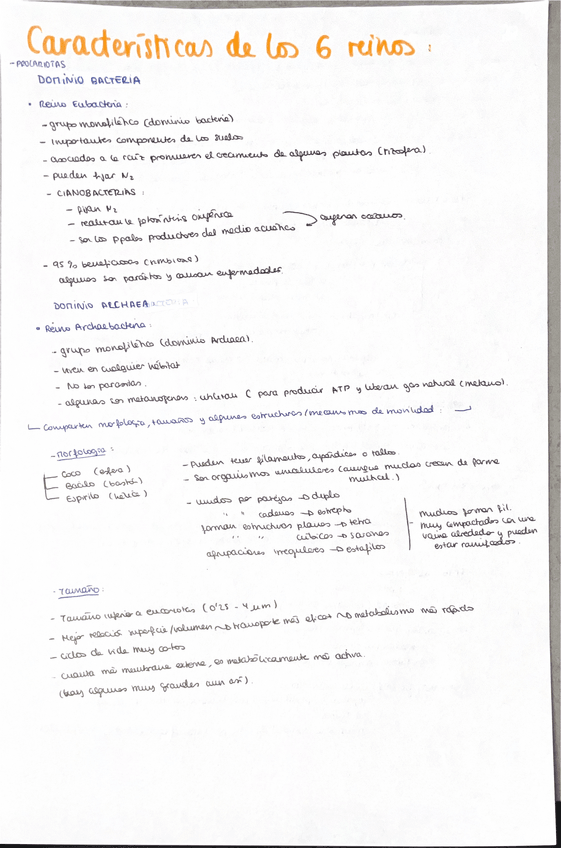 Características de los 6 reinos:
- PROCARIOTAS
DOMINIO BACTERIA
• Reino Eubacteria:
- grupo monofilético (dominio bacteria)
- Importantes componentes de los suelos
- asociados a la raíz promueven el crecimiento de algunas plantas (rizosfera)
- pueden fijar N₂
- CIANOBACTERIAS:
- fijan N₂
- realizan la fotosíntesis oxigénica
- Son los ppales productores del medio acuático
oxigenan océanos.
- 95% beneficiosas (simbiosis)
algunas son parásitas y causan enfermedades.
DOMINIO ARCHAEA
• Reino Archaebacteria:
- grupo monofilético (dominio Archaea).
- viven en cualquier hábitat
- No son parásitas.
- algunas son metanógenas: utilizan C para producir ATP y liberan gas natural (metano).
Comparten morfología, tamaños y algunas estructuras/mecanismos de movilidad:
- Morfología:
Coco (esfera)
Bacilo (bastón)
Espirilo (hélice)
- Pueden tener filamentos, apéndices o tallos
- Son organismos unicelulares (aunque muchas crecen de forma
multicel.)
- unidos por parejas → diplo
" " cadenas → estrepto
forman estructuras planas → tetra
" " cúbicas → sarcinas
agrupaciones irregulares → estafilos
muchas forman fil.
muy compactados con una
vaina alrededor y pueden
estar ramificados.
- Tamaño:
- Tamaño inferior a eucariotas (0'25 - 4 μm)
- Mejor relación superficie/volumen → transporte más eficaz → metabolismo más rápido
- Ciclos de vida muy cortos
- cuanta más membrana externa, es metabólicamente más activa.
(hay algunas muy grandes aun así).